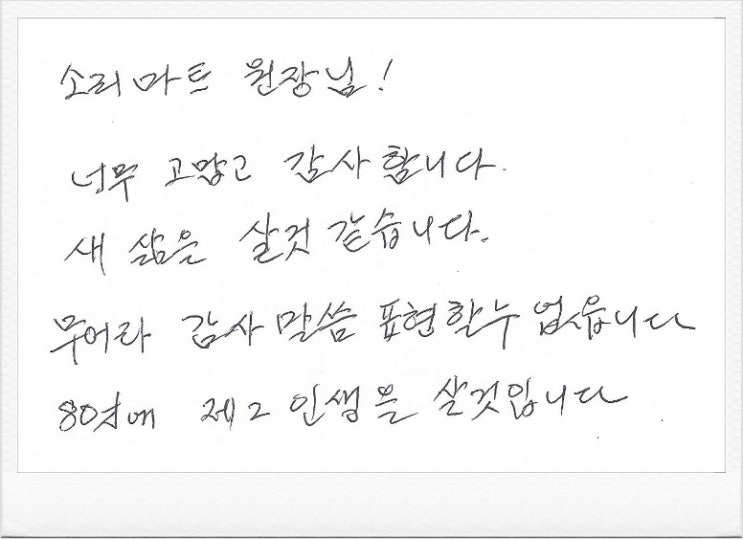 소리마트 원장님!
너무 고맙고 감사합니다.
새 삶을 살것 같습니다.
무어라 감사 말씀 표현할수 없읍니다
80엳에 제2 인생을 살것입니다